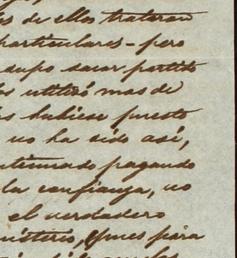 es de ellos trataran
particulares - pero
supo sacar partido
les utilizó mas de
les hubiese puesto
no ha sido así,
ntinuado pagando
la confianza, no
el verdadero
nisterio, pues para